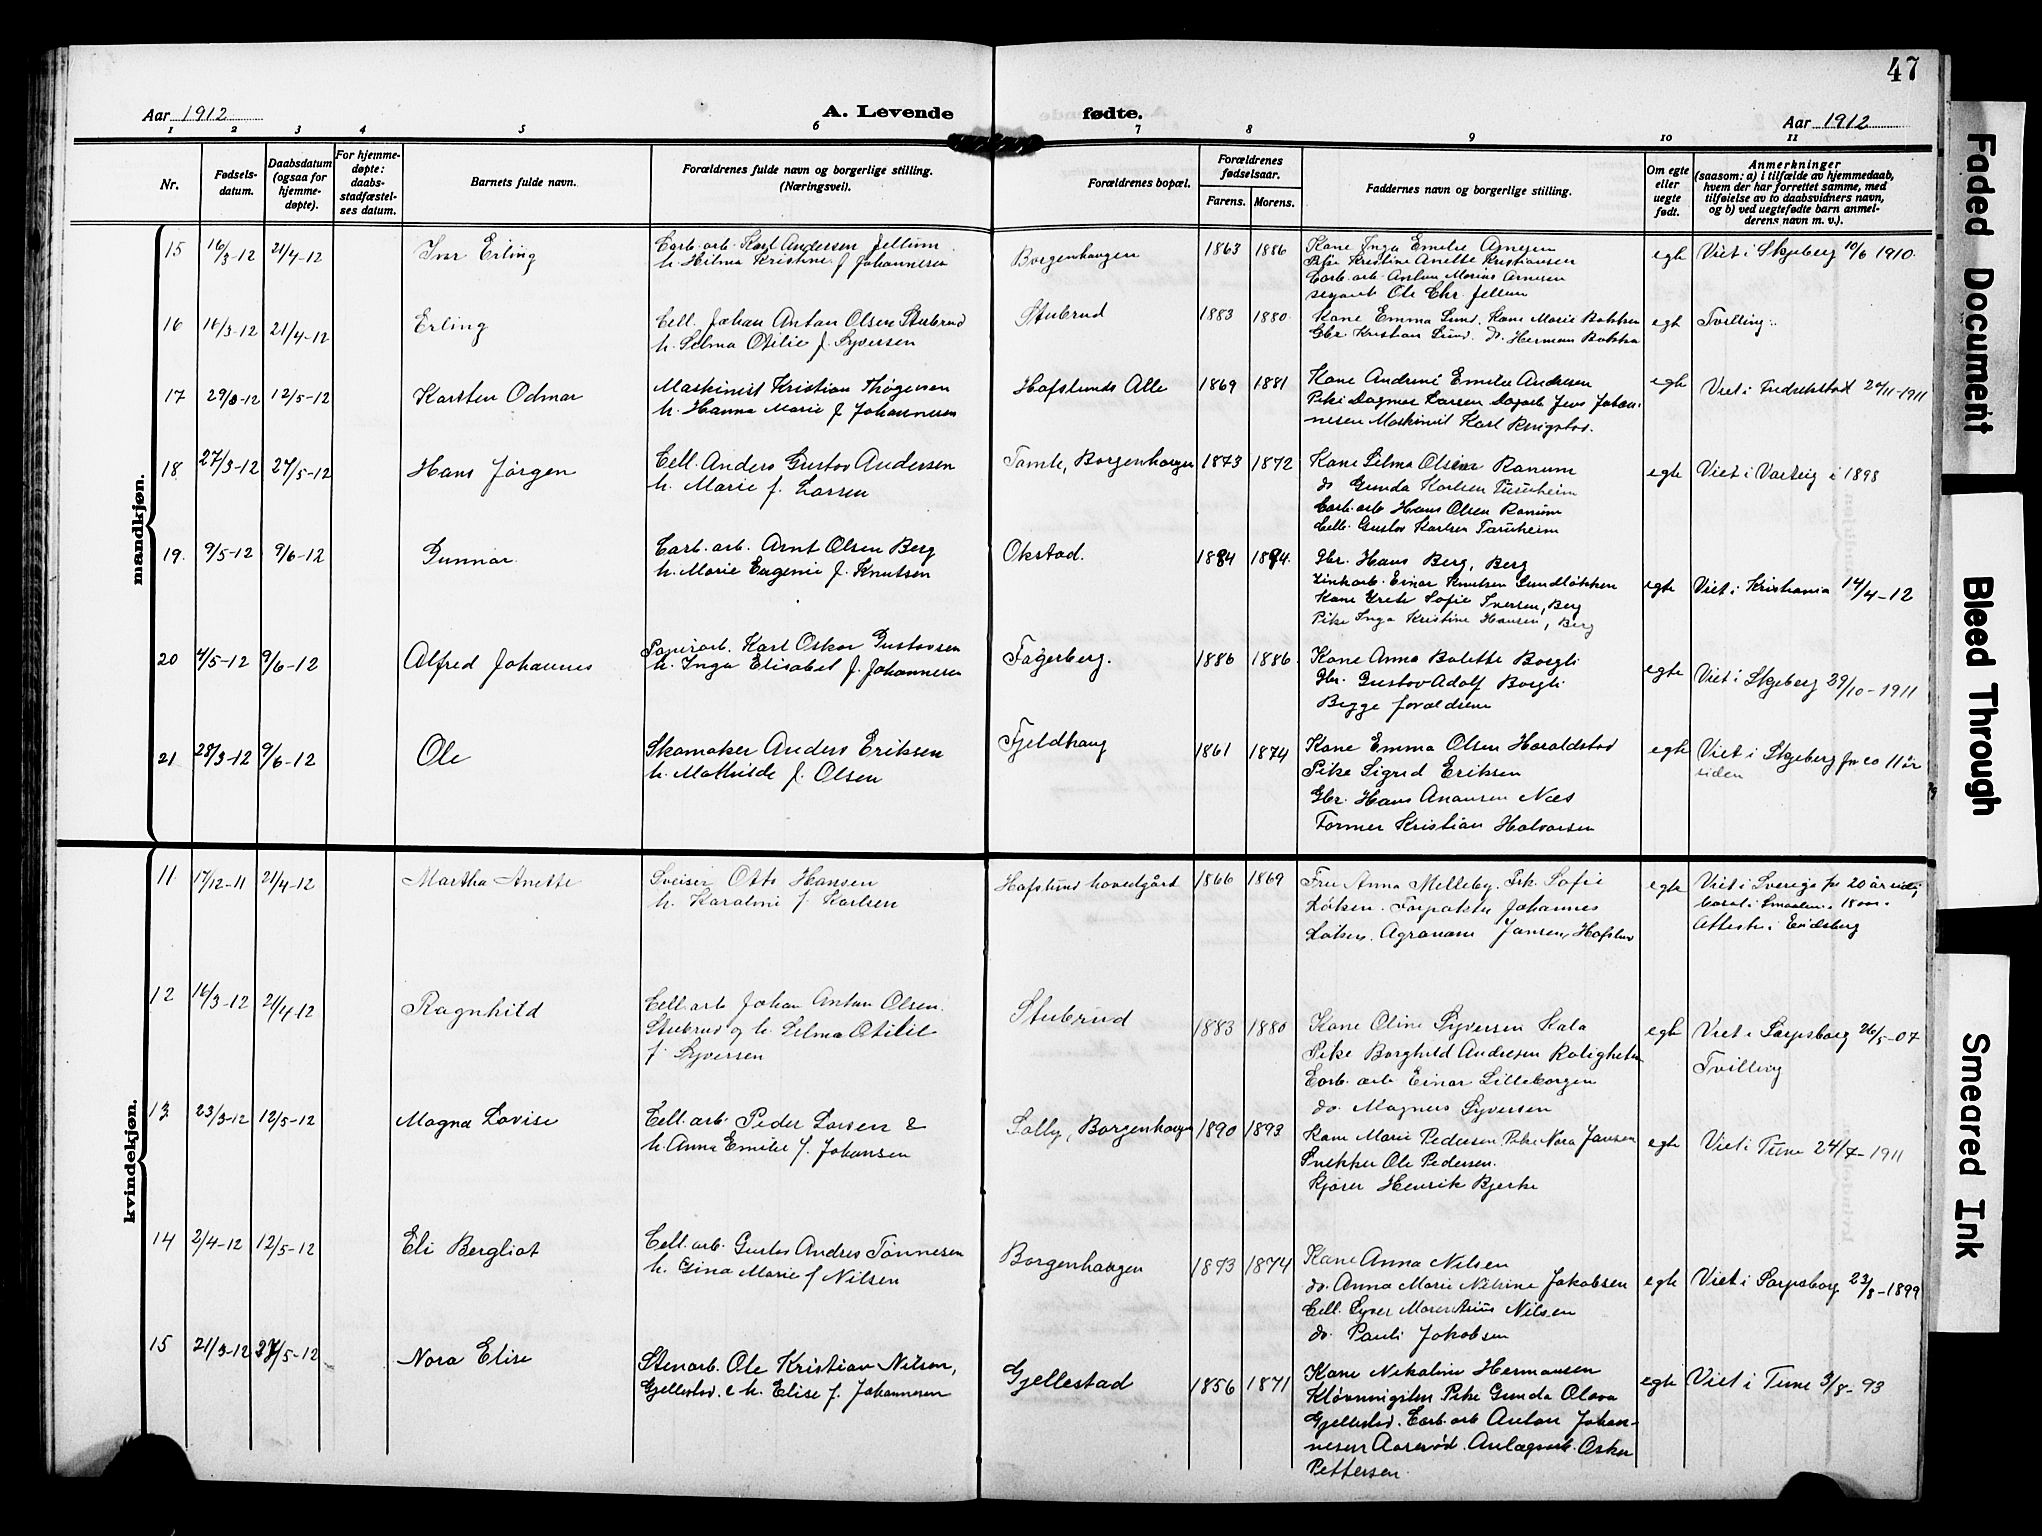 47
Aar 1912
A. Levende fødte.
Aar 1912
1 2 3 4 5 6 7 8 9 10 11
Nr.
Fødsels-
datum.
Daabsdatum
(ogsaa for
hjemme-
døpte).
For hjemme-
døpte:
daabs-
stadfæstel-
ses datum.
Barnets fulde navn.
Forældrenes fulde navn og borgerlige stilling.
(Næringsvei).
Forældrenes bopæl.
Forældrenes
fødselsaar.
Farens. Morens.
Faddernes navn og borgerlige stilling.
Om egte
eller
uegte
født.
Anmerkninger
(saasom: a) i tilfælde av hjemmedaab,
hvem der har forrettet samme, med
tilføielse av to daabsvidners navn,
og b) ved uegtefødte barn anmel-
derens navn m. v.).
mandkjøn.
15 16/3-12 21/4-12 Ivar Erling
Carb. arb. Karl Andersen Jellum
h. Hilma Kristine f. Johannesen
Borgenhaugen 1863 1886
Kone Inga Emilie Arnesen
Pike Kristine Anette Kristiansen
Carb. arb. Anton Marius Arnesen
Ole Chr. Jellum
egte Viet i Skjeberg 10/6 1910.
16 16/3-12 21/4-12 Erling
Cell. Johan Anton Olsen Stubrud
h. Selma Otilie f. Syversen
Stubrud 1883 1880
Kone Emma Lund. Kone Marie
Gbr Kristian Lund. do. Herman
egte Tvilling.
17 29/3-12 12/5-12 Karsten Odmar
Maskinist Kristian Thøgersen
h. Hanna Marie f. Johannesen
Hafslunds Alle 1869 1881
Kone Andrine Emilie Andresen
Pike Dagmar Larsen Dagarb. Jens Johan-
nesen Maskinist Karl Ringstad.
egte Viet i Fredrikstad 29/11-1911
18 27/3-12 27/5-12 Hans Jørgen
Cell. Anders Gustav Andersen
h. Marie f. Larsen
Tomte, Borgenhaugen 1873 1872
Kone Selma Olsen Ranum
do Gunda Karlsen Furuheim
Carb. arb Hans Olsen Ranum
Cell. Gustav Karlsen Furuheim
egte Viet i Varteig i 1898
19. 9/5-12 9/6-12 Gunnar.
Carb. arb. Arnt Olsen Berg
h. Marie Eugenie f. Knutsen
Okstad. 1884 1894.
Gbr. Hans Berg, Berg
Zinkarb. Einar Knutsen Sundløkken
Kone Grete Sofie Iversen, Berg
Pike Inga Kristine Hansen, Berg
egte Viet i Kristiania 14/4-12
20 4/5-12 9/6-12 Alfred Johannes
Papirarb. Karl Oskar Gustavsen
h. Inga Elisabet f. Johannesen
Fagerberg. 1886 1886.
Kone Anna Balette Borgli
Gbr. Gustav Adolf Borgli
Begge forældrene
egte Viet i Skjeberg 29/10-1911
21 28/3-12 9/6-12 Ole
Skomaker Anders Eriksen
h. Mathilde f. Olsen
Fjeldhaug 1861 1874
Kone Emma Olsen Haraldstad
Pike Sigrid Eriksen
Gbr. Hans Anansen Næs
Former Kristian Halvorsen
egte Viet i Skjeberg for ca 11 år
siden
kvindekjøn.
11 17/12-11 21/4-12 Martha Anette
Sveiser Otto Hansen
h. Karoline f. Karlsen
Hafslund hovedgård 1866 1869
Fru Anna Melleby. Frk. Sofie
Løken. Forpakter Johannes
Løken. Agronom Jansen, Hafslund
egte Viet i Sverige for 20 år siden,
boet i Smaalen. 18 aar.
Attest i Eidsberg
12 16/3-12 21/4-12 Ragnhild
Cell. arb Johan Anton Olsen.
Stubrud og h. Selma Otilie
f. Syversen
Stubrud 1883 1880
Kone Oline Syversen Kala
Pike Borghild Andresen Roligheten
Carb. arb Einar Lilleborgen
do. Magnus Syversen
egte Viet i Sarpsborg 26/5-07
Tvilling
13 23/3-12 12/5-12 Magna Lovise
Cell. arb. Peder Larsen &
h. Anna Emilie f. Johansen
Solly, Borgenhaugen 1890 1893
Kone Marie Pedersen. Pike Nora Jansen
Snekker Ole Pedersen.
Kjører Henrik Bjerke
egte Viet i Tune 24/7-1911
14 2/4-12 12/5-12 Eli Bergliot
Cell. arb. Gustav Andres Tønnesen
h. Gina Marie f Nilsen
Borgenhaugen 1873 1874
Kone Anna Nilsen
do. Anna Marie Nilsine Jakobsen
Cell. Syver Nilsen
do. Pauli Jakobsen
egte Viet i Sarpsborg 23/8-1899
15 21/3-12 27/5-12 Nora Elise
Stenarb. Ole Kristian Nilsen,
Gjellestad. & h. Elise f. Johannesen
Gjellestad 1856 1871
Kone Nikoline Hermansen
Kløvningsten Pike Gunda Olava
Gjellestad. Carb. arb Anton Johan-
nesen Aarerød. Anlægsarb. Oskar
Pettersen.
egte Viet i Tune 3/8-93
Faded Document
Bleed Through
Smeared Ink